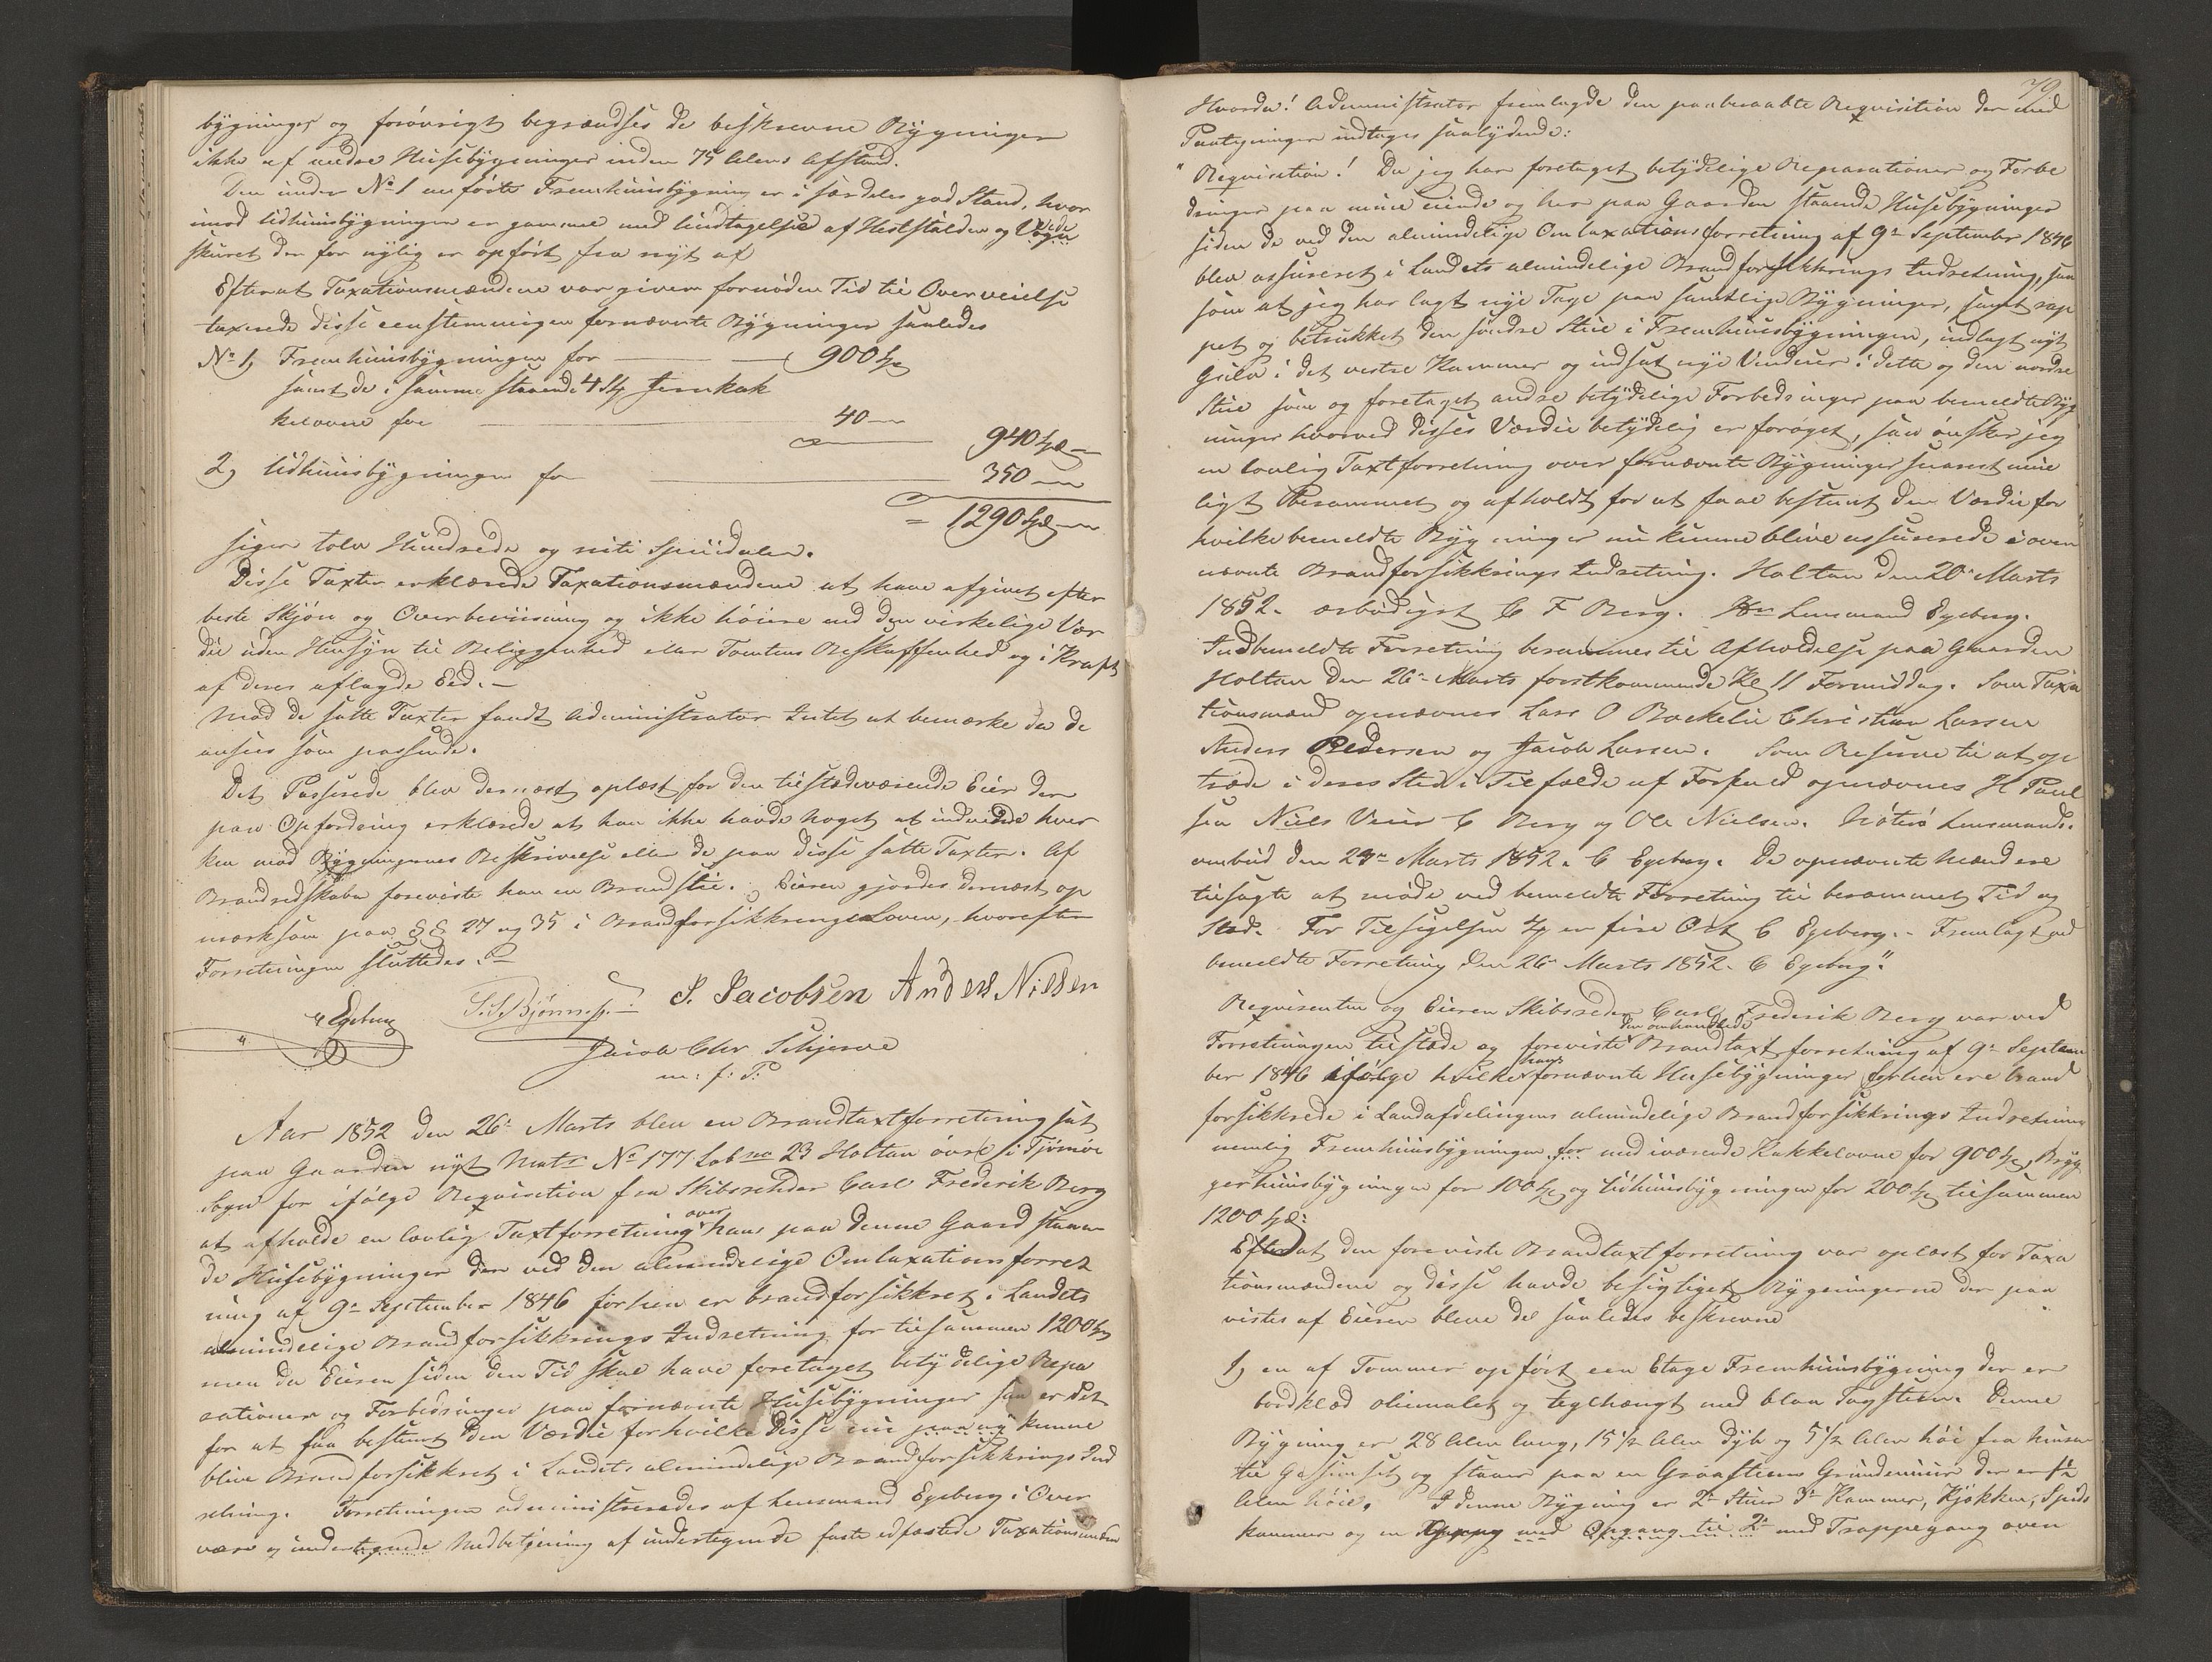 bygninger og forøvrigt begrændses de beskrevne Bygninger
ikke af andre Huusebygninger inden 75 Alens Afstand.
Den under No 1 anførte Fremhuusbygning er i særdeles god Stand, hvor
imod Udhuusbygningen er gammel med Undtagelse af Heststalden og Vogn
skuret der for nylig er opført fra nyt af
Efterat Taxationsmændene var given fornøden Tid til Overveielse
taxerede disse eenstemmigen fornævnte Bygninger saaledes
No 1, Fremhuusbygningen for 900 Spd
samt de i samme staaende 4 Stk Jernkak
kelovne for 40 -
940 Spd -
2, Udhuusbygningen for 350 -
= 1290 Spd -
siger tolv Hundrede og niti Spesidaler.
Disse Taxter erklærede Taxationsmændene at have afgivet efter
beste Skjøn og Overbeviisning og ikke høiere end den virkelige Vær
die uden Hensyn til Beliggenhed eller Tomtens Beskaffenhed og i Kraft
af deres aflagde Eed. -
Mod de satte Taxter fandt Administrator Intet at bemærke da de
ansees som passende.
Det Passerede blev dernæst oplæst for den tilstedeværende Eier der
paa Opfordring erklærede at han ikke havde noget at indvende hver
ken mod Bygningernes Beskrivelse eller de paa disse satte Taxter. Af
Brandredskaber foreviste han en Brandstie. Eieren gjordes dernæst op
mærksom paa §§ 27 og 35 i Brandforsikkringsloven, hvorefter
Forretningen sluttedes.
C Egeberg S. S. Bjønnes. S. Jacobsen Anders Nilsen
Jacob Chr Schjerve
m: f: P:
Aar 1852 den 26de Marts blev en Brandtaxtforretning sat
paa Gaarden nyt Matr No 177 Lob no 23 Holtan øvre i Tjømøe
Sogn for ifølge Requisition fra Skibsrheder Carl Frederik Berg
at afholde en lovlig Taxtforretning over hans paa denne Gaard staaen
de Huusebygninger der ved den almindelige Omtaxationsforret
ning af 9de September 1846 forhen er brandforsikkret i Landets
almindelige Brandforsikkrings Indretning for tilsammen 1200 Spd
men da Eieren siden den Tid skal have foretaget betydelige Repa
rationer og Forbedringer paa fornævnte Huusebygninger saa er det
for at faa bestemt den Værdie for hvilke disse nu paa ny kunne
blive Brandforsikkret i Landets almindelige Brandforsikkrings Ind
retning. Forretningen administreredes af Lensmand Egeberg i Over
være og undertegnede Medbetjening af undertegnede faste edfæstede Taxationsmænd
79
Hvorda! Administrator fremlagde den paaberaabte Requisition der med
Paategninger indtages saalydende:
"Requisition! Da jeg har foretaget betydelige Reparationer og Forbe
dringer paa mine eiende og her paa Gaarden staaende Huusebygninger
siden de ved den almindelige Omtaxationsforretning af 9de September 1846
blev assureret i Landets almindelige Brandforsikkrings Indretning, saa
som at jeg har lagt nye Tage paa samtlige Bygninger, samt rap
pet og betrukket den søndre Stue i Fremhuusbygningen, indlagt nyt
Gulv i det vestre Kammer og indsat nye Vinduer i dette og den nordre
Stue som og foretaget andre betydelige Forbedringer paa bemeldte Byg
ninger hvorved disses Værdie betydelig er forøget, saa ønsker jeg
en lovlig Taxtforretning over fornævnte Bygninger snarest mue
ligt berammet og afholdt for at faae bestemt den Værdie for
hvilke bemeldte Bygninger nu kunne blive assurerede i oven
nævnte Brandforsikkrings Indretning. Holtan den 20de Marts
1852. ærbødigst C F Berg. Hr Lensmand Egeberg.
Indbemeldte Forretning berammes til Afholdelse paa Gaarden
Holtan den 26de Marts førstkommende Kl 11 Formiddag. Som Taxa
tionsmænd opnævnes Lars O Bækelie Christian Larsen
Anders Pedersen og Jacob Larsen. Som Reserve til at op
træde i deres Sted i Tilfælde af Forfald opnævnes H Paul
sen Niels Veier C Berg og Ole Nielsen. Nøterø Lensmands.
ombud den 23de Marts 1852. C Egeberg. De opnævnte Mænd ere
tilsagte at møde ved bemeldte Forretning til berammet Tid og
Sted. For Tilsigelsen 4/ er fire Ort C Egeberg. - Fremlagt ved
bemeldte Forretning den 26de Marts 1852. C Egeberg."
Requirenten og Eieren Skibsreder Carl Frederik Berg var ved
Forretningen tilstede og foreviste den omhandlede Brandtaxtforretning af 9de Septem
ber 1846 ifølge hvilken hans fornævnte Huusebygninger forhen ere brand
forsikkrede i Landafdelingens almindelige Brandforsikkrings Indretning
nemlig Fremhuusbygningen for med iværende Kakkelovne for 900 Spd, Bryg
gerhuusbygningen for 100 Spd og Udhuusbygningen for 200 Spd tilsammen
1200 Spd:
Efterat den foreviste Brandtaxtforretning var oplæst for Taxa
tionsmændene og disse havde besigtiget Bygningerne der paa
vistes af Eieren bleve de saaledes beskrevne
1, en af Tømmer opført een Etage Fremhuusbygning der er
bordklæd oliemalet og teglhængt med blaa Tagsteen. Denne
Bygning er 28 Alen lang, 15 1/2 Alen dyb og 5 1/2 Alen høi fra Muren
til Gesimset og staaer paa en Graasteens Grundmuur der er 1/2
Alen høi. I denne Bygning er 2de Stuer 3de Kammer, Kjøkken, Spiis
kammer og en Gang med Opgang til 2de med Trappegang oven